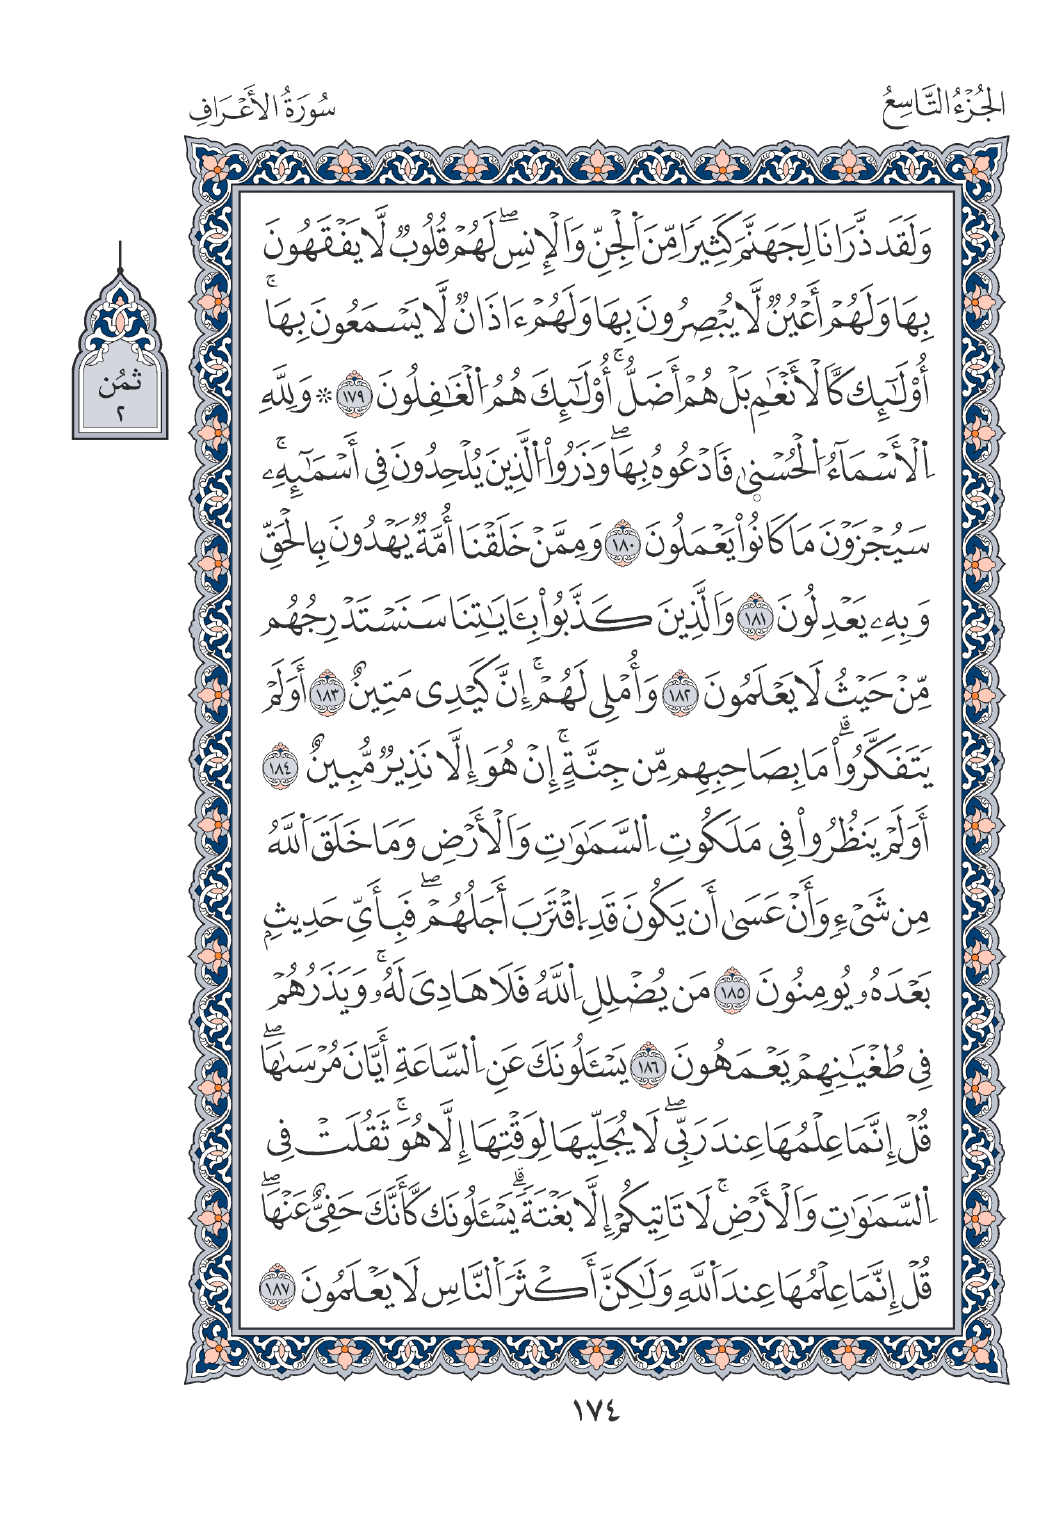 الجُزْءُ التَّاسِعُ
سُورَةُ الأَعْرَافِ
وَلَقَد ذَّرَانَا لِجَهَنَّمَ كَثِيرًا مِّنَ اَ۬لْجِنِّ وَالْإِنسِۖ لَهُمْ قُلُوبٌ لَّا يَفْقَهُونَ
بِهَا وَلَهُمْ أَعْيُنٌ لَّا يُبْصِرُونَ بِهَا وَلَهُمْ ءَاذَانٌ لَّا يَسْمَعُونَ بِهَاۚ
أُوْلَٰٓئِكَ كَالْأَنْعَٰمِ بَلْ هُمْ أَضَلُّۚ أُوْلَٰٓئِكَ هُمُ اُ۬لْغَٰفِلُونَ ١٧٩ ۞ وَلِلهِ
ثُمُن
٢
اِ۬لْأَسْمَآءُ اُ۬لْحُسْنۭيٰ فَادْعُوهُ بِهَاۖ وَذَرُواْ اُ۬لَّذِينَ يُلْحِدُونَ فِي أَسْمَٰٓئِهِۦۚ
سَيُجْزَوْنَ مَا كَانُواْ يَعْمَلُونَ ١٨٠ وَمِمَّنْ خَلَقْنَا أُمَّةٌ يَهْدُونَ بِالْحَقِّ
وَبِهِۦ يَعْدِلُونَ ١٨١ وَالَّذِينَ كَذَّبُواْ بِـَٔايَٰتِنَا سَنَسْتَدْرِجُهُم
مِّنْ حَيْثُ لَا يَعْلَمُونَ ١٨٢ وَأُمْلِي لَهُمْۚ إِنَّ كَيْدِي مَتِينٌ ١٨٣ أَوَلَمْ
يَتَفَكَّرُواْۗ مَا بِصَاحِبِهِم مِّن جِنَّةٍۚ إِنْ هُوَ إِلَّا نَذِيرٌ مُّبِينٌ ١٨٤
أَوَلَمْ يَنظُرُواْ فِي مَلَكُوتِ اِ۬لسَّمَٰوَٰتِ وَالْأَرْضِ وَمَا خَلَقَ اَ۬للَّهُ
مِن شَيْءٍ وَأَنْ عَسَىٰ أَن يَكُونَ قَدِ اِ۪قْتَرَبَ أَجَلُهُمْۖ فَبِأَيِّ حَدِيثٍ
بَعْدَهُۥ يُومِنُونَ ١٨٥ مَن يُضْلِلِ اِ۬للَّهُ فَلَا هَادِيَ لَهُۥۚ وَيَذَرُهُمْ
فِي طُغْيَٰنِهِمْ يَعْمَهُونَ ١٨٦ يَسْـَٔلُونَكَ عَنِ اِ۬لسَّاعَةِ أَيَّانَ مُرْسَىٰهَاۖ
قُلْ إِنَّمَا عِلْمُهَا عِندَ رَبِّيۖ لَا يُجَلِّيهَا لِوَقْتِهَا إِلَّا هُوَۚ ثَقُلَتْ فِي
اِ۬لسَّمَٰوَٰتِ وَالْأَرْضِۚ لَا تَاتِيكُمْ إِلَّا بَغْتَةًۗ يَسْـَٔلُونَكَ كَأَنَّكَ حَفِيٌّ عَنْهَاۖ
قُلْ إِنَّمَا عِلْمُهَا عِندَ اَ۬للَّهِ وَلَٰكِنَّ أَكْثَرَ اَ۬لنَّاسِ لَا يَعْلَمُونَ ١٨٧
١٧٤